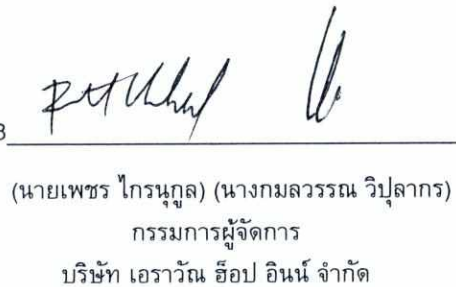 (นายเพชร ไกรนุกูล) (นางกมลวรรณ วิปุลากร)
กรรมการผู้จัดการ
บริษัท เอราวัณ ฮ็อป อินน์ จำกัด